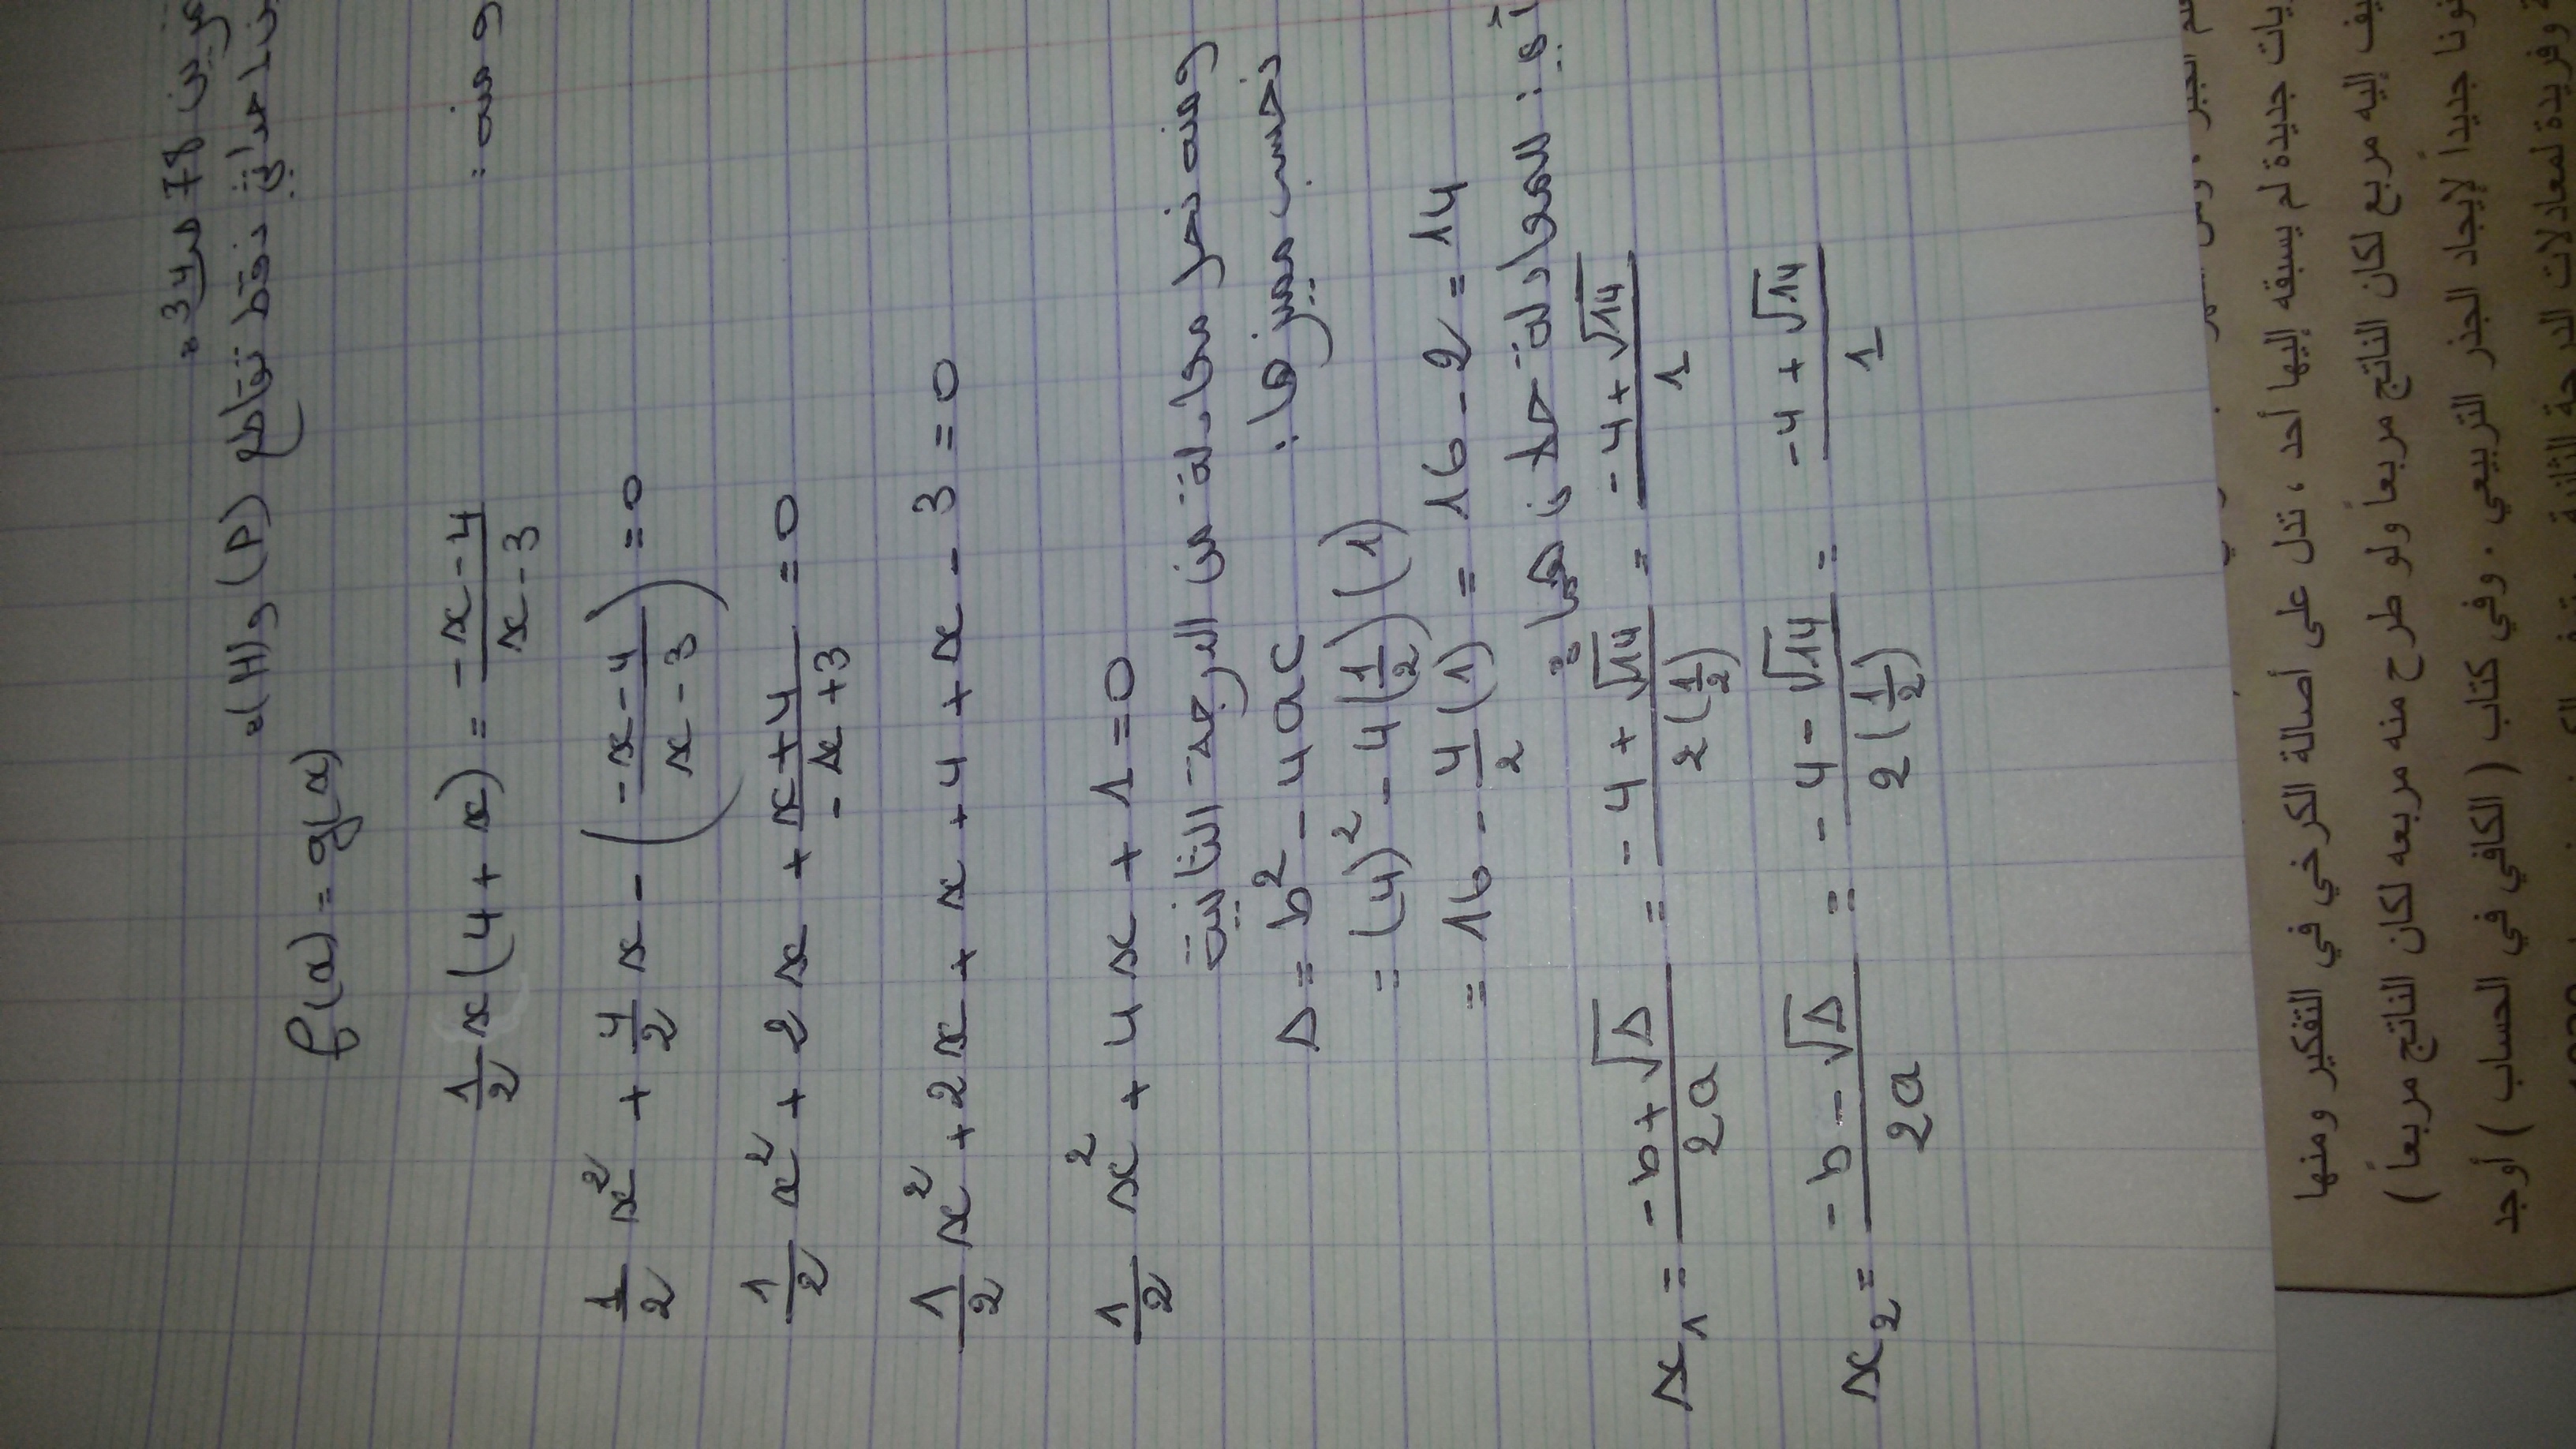 تمرين 78 ص 34:
احداثي نقط تقاطع (P) و (H):
f(x) = g(x)
ومنه: 1/2 x(4 + x) = (-x - 4)/(x - 3)
1/2 x² + 4/2 x - ((-x - 4)/(x - 3)) = 0
1/2 x² + 2x + (x + 4)/(-x + 3) = 0
1/2 x² + 2x + x + 4 + x - 3 = 0
1/2 x² + 4x + 1 = 0
ومنه نحل معادلة من الدرجة الثانية
نحسب مميزها: Δ = b² - 4ac
= (4)² - 4(1/2)(1)
= 16 - 4/2 (1) = 16 - 2 = 14
أي: للمعادلة حلان هما:
x₁ = (-b + √Δ)/2a = (-4 + √14)/2(1/2) = (-4 + √14)/1
x₂ = (-b - √Δ)/2a = (-4 - √14)/2(1/2) = (-4 + √14)/1
يات جديدة لم يسبقه إليها أحد ، تدل على أصالة الكرخي في التفكير ومنها
يف إليه مربع لكان الناتج مربعاً ولو طرح منه مربعه لكان الناتج مربعاً )
نونا جديداً لإيجاد الجذر التربيعي . وفي كتاب ( الكافي في الحساب ) أوجد
وفريدة لمعادلات الدرجة الثانية